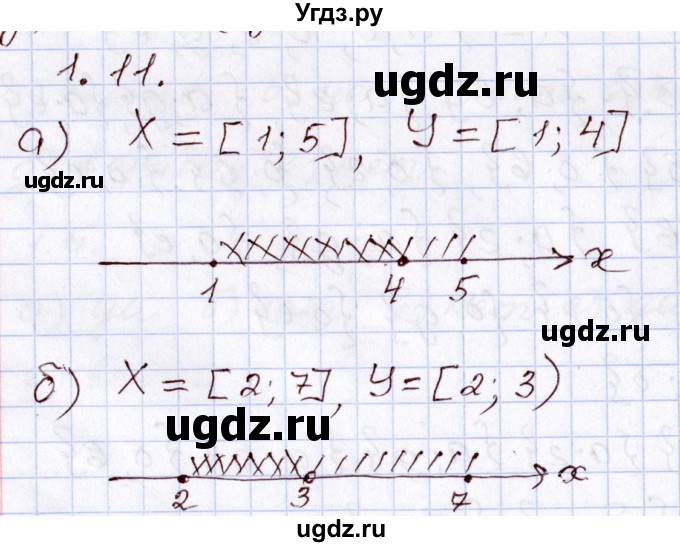 Угдз.ру
1.11.
ugdz.ru
а) X = [1; 5], У = [1; 4]
ugdz.ru
1 4 5 x
ugdz.ru
б) X = [2; 7], У = [2; 3)
ugdz.ru
2 3 7 x
ugdz.ru